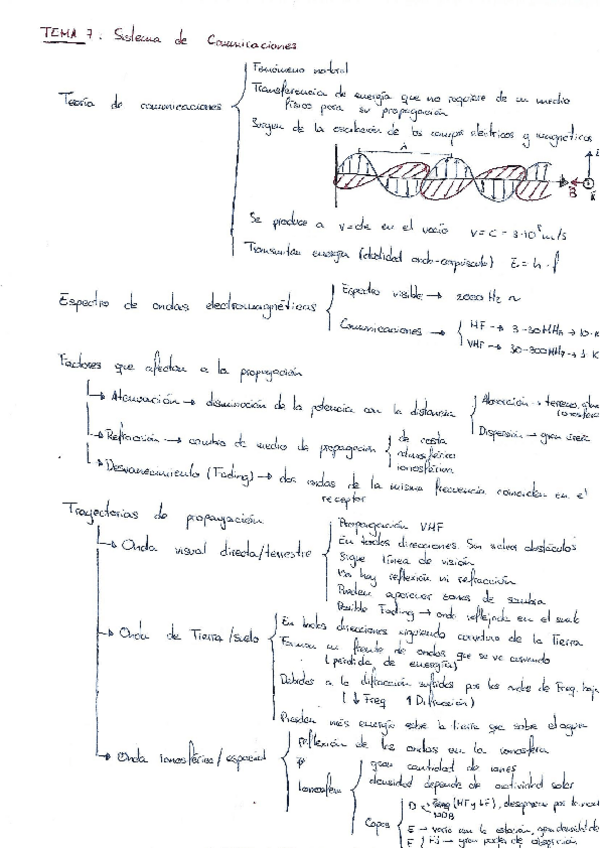 TEMA 7. Sistema de Comunicaciones
Fenómeno natural
Teoría de comunicaciones
Transferencia de energía que no requiere de un medio
físico para su propagación
Surgen de la oscilación de los campos eléctricos y magnéticos
λ
B
Se produce a v=cte en el vacío v = c = 3·10⁸ m/s
Transmiten energía (dualidad onda-corpúsculo) E = h · f
Espectro de ondas electromagnéticas
Espectro visible → 2000 Hz ~
Comunicaciones →
HF → 3-30MHz → 10
VHF → 30-300MHz → 1
Factores que afectan a la propagación
→ Atenuación → disminución de la potencia con la distancia
Absorción → terreno,
ionosfera
Dispersión → gran
→ Refracción → cambio de medio de propagación
de costa
atmosférica
ionosférica
→ Desvanecimiento (Fading) → dos ondas de la misma frecuencia coinciden en el
receptor
Trayectorias de propagación
→ Onda visual directa/terrestre
Propagación VHF
En todas direcciones. Sin obstáculos
Sigue línea de visión
No hay reflexión ni refracción
Pueden aparecer zonas de sombra
Posible Fading → onda reflejada en el suelo
→ Onda de Tierra/suelo
En todas direcciones siguiendo curvatura de la Tierra
Forman un frente de ondas que se va curvando
(pérdida de energía)
Debidas a la difracción sufridas por las ondas de Freq. baja
(↓ Freq ↑ Difracción)
Pierden más energía sobre la tierra que sobre el agua
→ Onda Ionosférica/espacial
reflexión de las ondas en la ionosfera
Ionosfera
gran cantidad de iones
densidad depende de actividad solar
Capas
D (MF y LF), desaparece por la
E → varía con la estación, gran densidad de
F